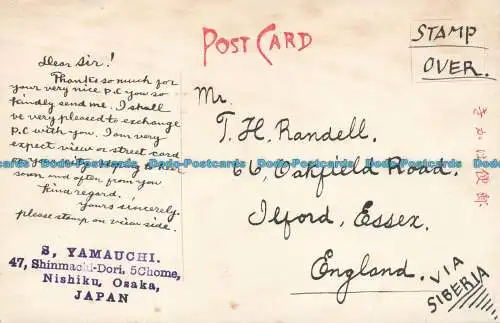 POST CARD
STAMP
OVER.
Dear Sir!
Thanks so much for
your very nice P.C you so
kindly send me. I shall
be very pleased to exchange
P.C with you. I am very
expect view or street card
to your city hoping to hear
soon and often from you
kind regard.
yours sincerely.
please stamp on view side.
S, YAMAUCHI.
47, Shinmachi-Dori, 5Chome,
Nishiku, Osaka,
JAPAN
Mr.
T. H. Randell.
66, Oakfield Road.
Ilford, Essex.
England.
VIA
SIBERIA
きかは便郵
Dodo-Postcards Dodo-Postcards Dodo-Postcards Dodo-Postcards Dodo-Postcards